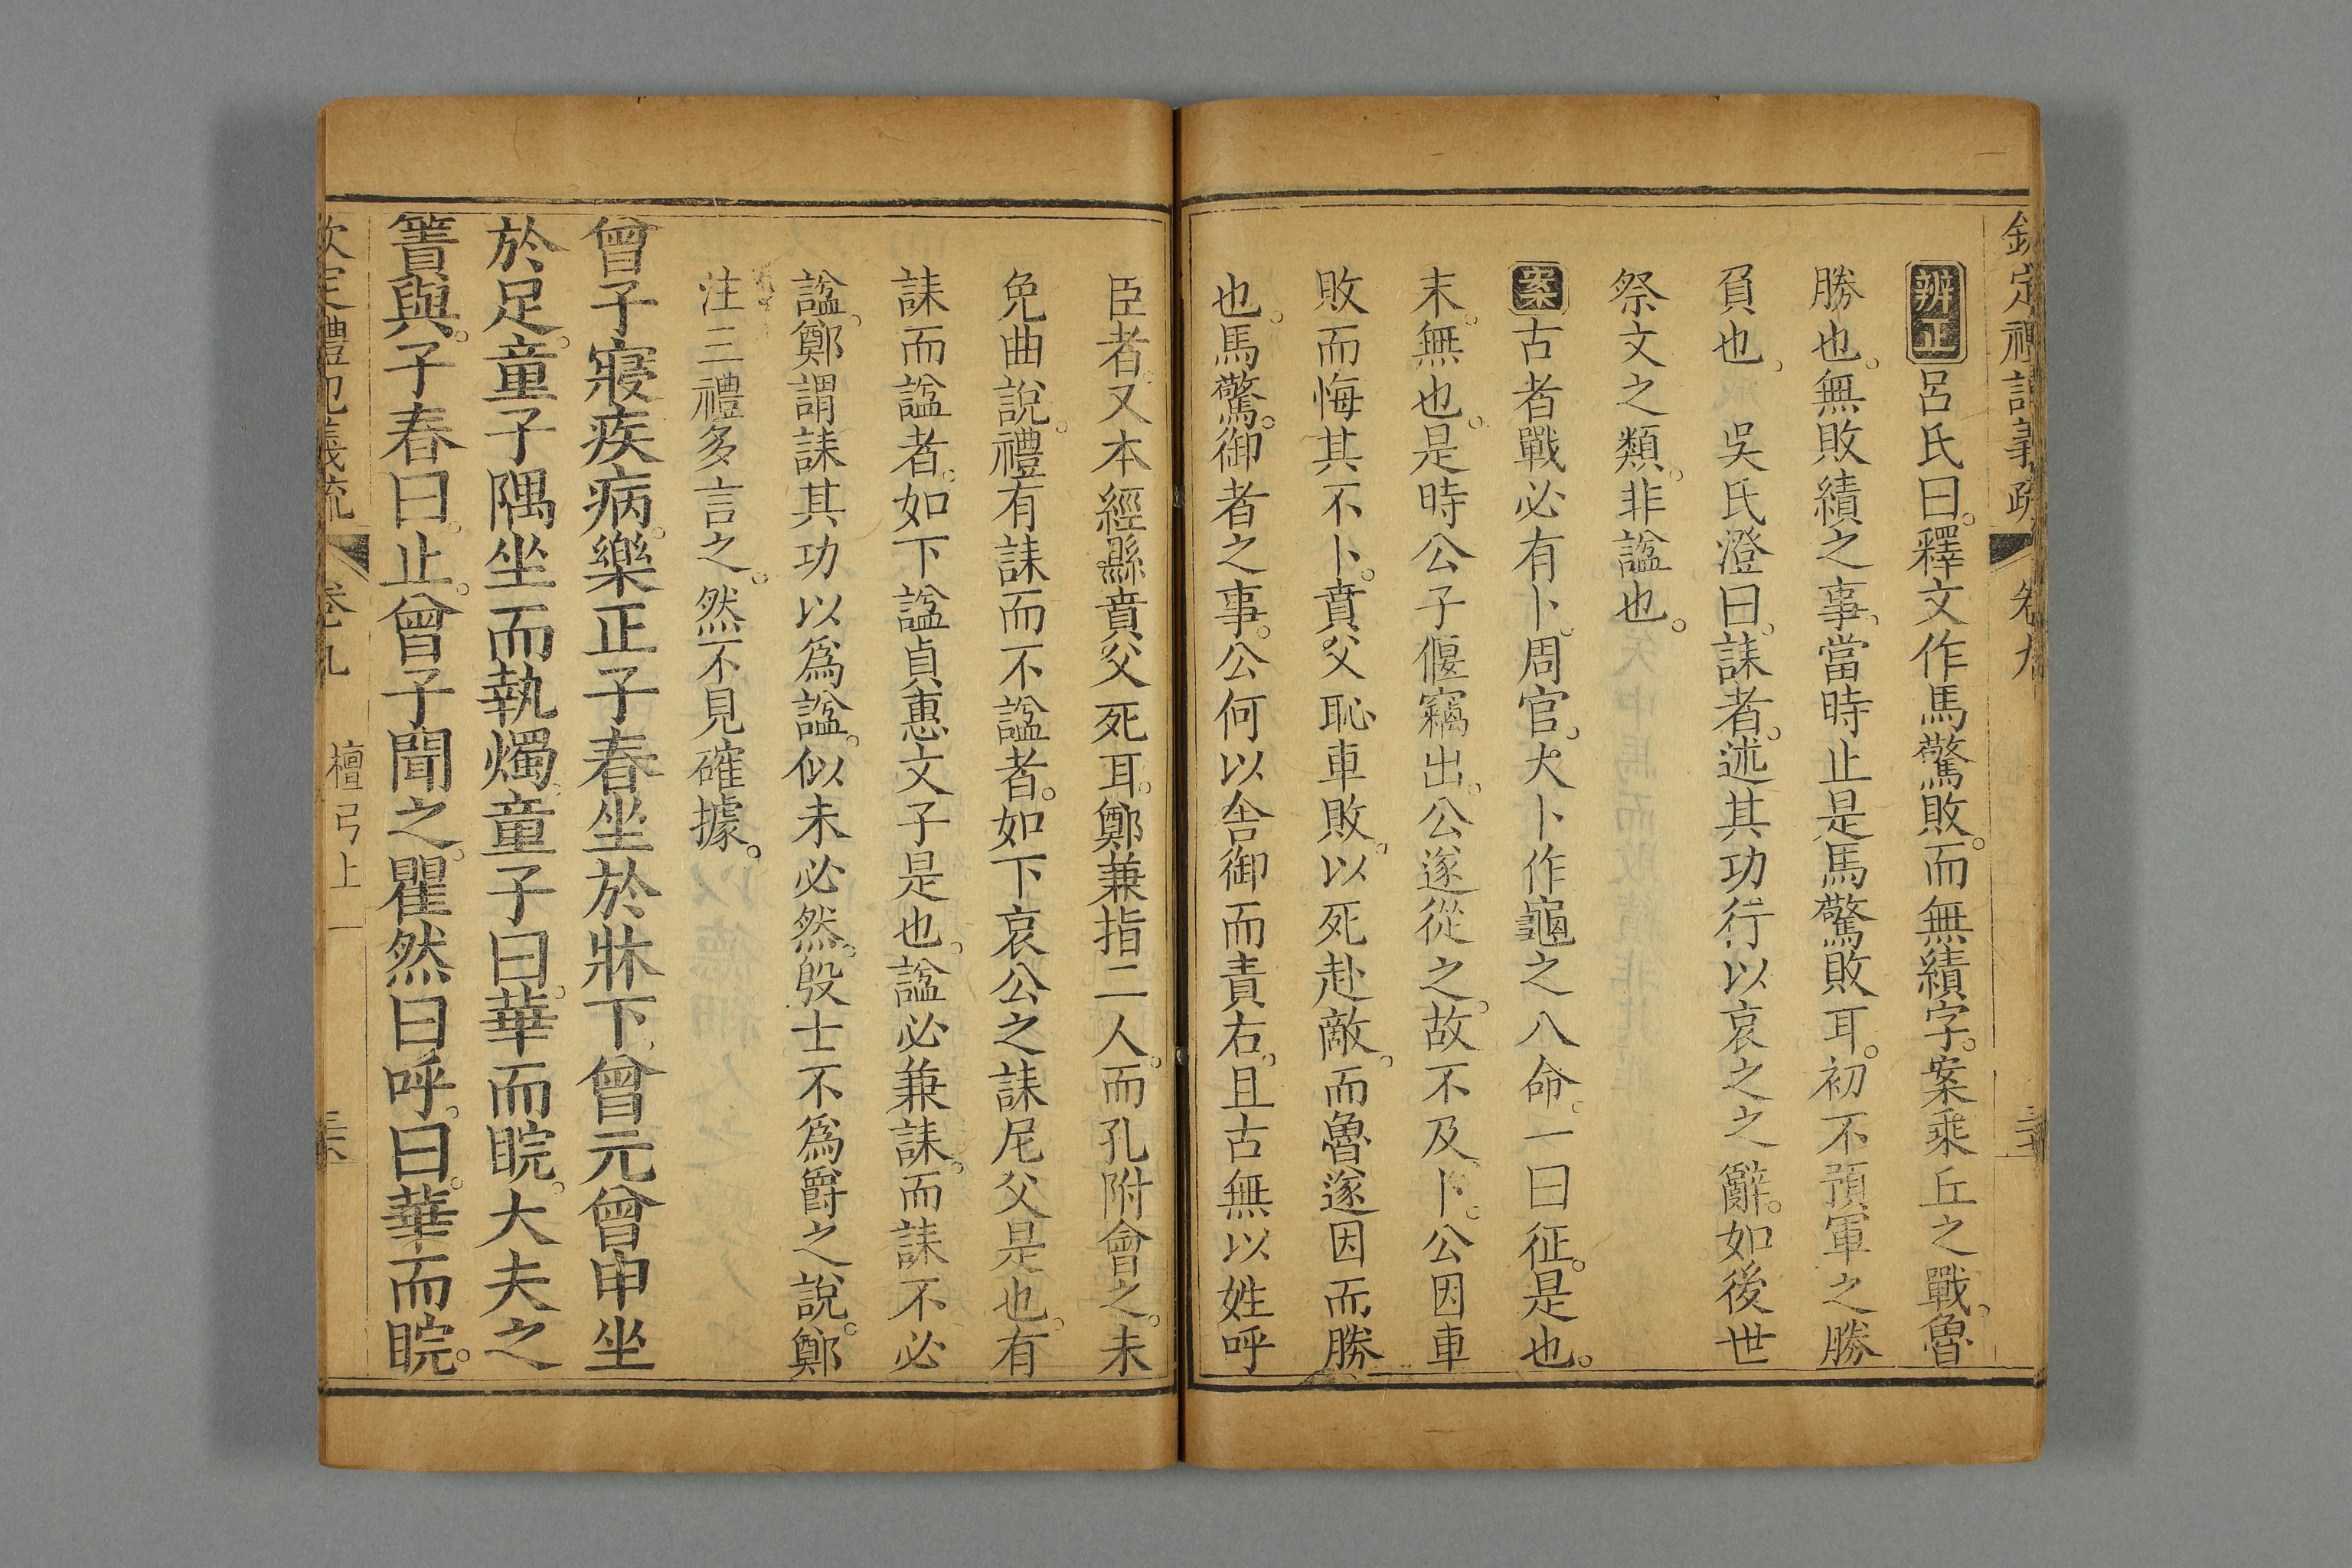 欽定禮記義疏 卷九
辨正 呂氏曰。釋文作馬驚敗。而無績字。案乘丘之戰。魯
勝也。無敗績之事。當時止是馬驚敗耳。初不預軍之勝
負也。 吳氏澄曰。誄者。述其功行以哀之之辭。如後世
祭文之類。非諡也。
案 古者戰必有卜。周官。大卜作龜之八命。一曰征。是也。
末。無也。是時公子偃竊出。公遂從之。故不及卜。公因車
敗而悔其不卜。賁父恥車敗。以死赴敵。而魯遂因而勝
也。馬驚。御者之事。公何以舍御而責右。且古無以姓呼
臣者。又本經縣賁父死耳。鄭兼指二人。而孔附會之。未
免曲說。禮有誄而不諡者。如下哀公之誄尼父是也。有
誄而諡者。如下諡貞惠文子是也。諡必兼誄。而誄不必
諡。鄭謂誄其功以為諡。似未必然。殷士不為爵之說。鄭
注三禮多言之。然不見確據。
曾子寢疾病。樂正子春坐於牀下。曾元曾申坐
於足。童子隅坐而執燭。童子曰。華而睆。大夫之
簀與。子春曰。止。曾子聞之。瞿然曰呼。曰。華而睆。
欽定禮記義疏 卷九 檀弓上